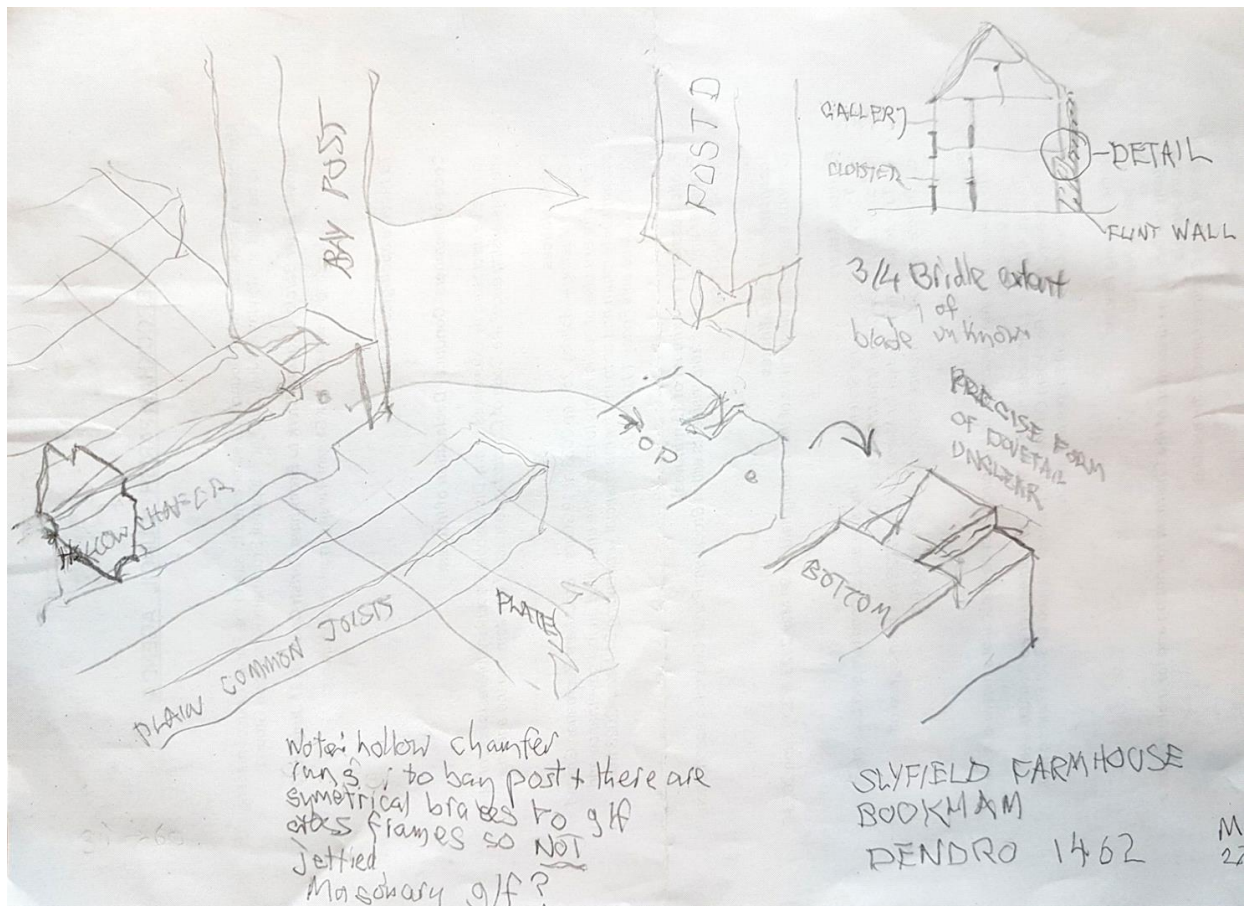 BAY POST
POST D
GALLERY
CLOISTER
DETAIL
FLINT WALL
3/4 Bridle extant
of
blade unknown
PRECISE FORM
OF DOVETAIL
UNCLEAR
TOP
BOTTOM
HOLLOW CHAFER
PLATE
PLAIN COMMON JOISTS
Note: hollow chamfer
runs to bay post + there are
symetrical braces to g/f
cross frames so NOT
jettied
Masonary g/f?
SLYFIELD FARMHOUSE
BOOKHAM
DENDRO 1462
M